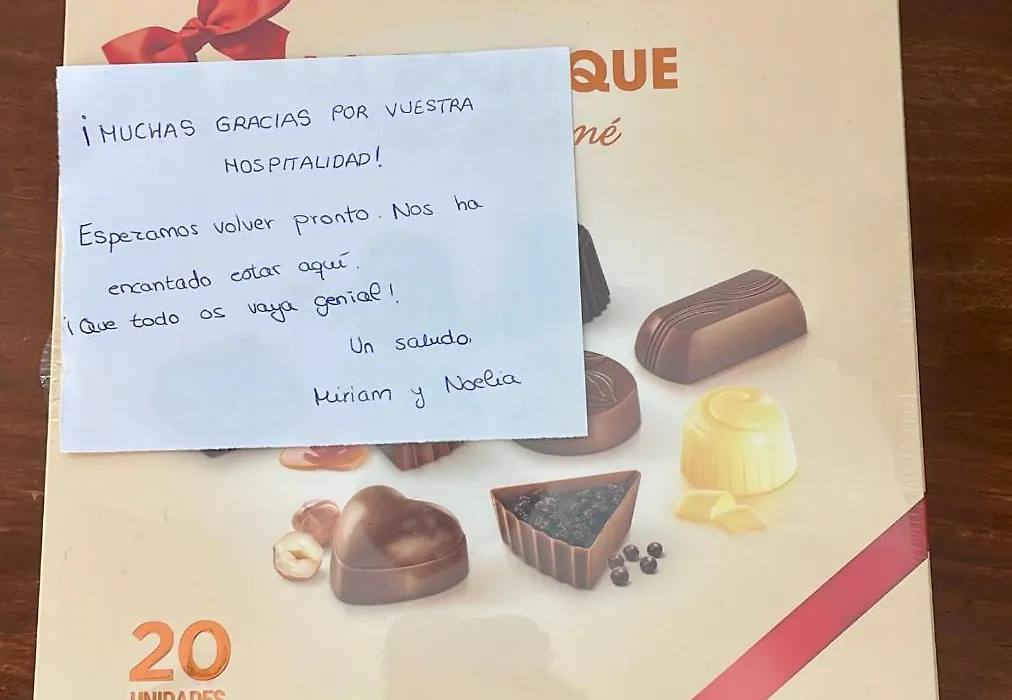 QUE
né
¡MUCHAS GRACIAS POR VUESTRA
HOSPITALIDAD!
Esperamos volver pronto. Nos ha
encantado estar aquí.
¡Que todo os vaya genial!
Un saludo,
Miriam y Noelia
20
UNIDADES